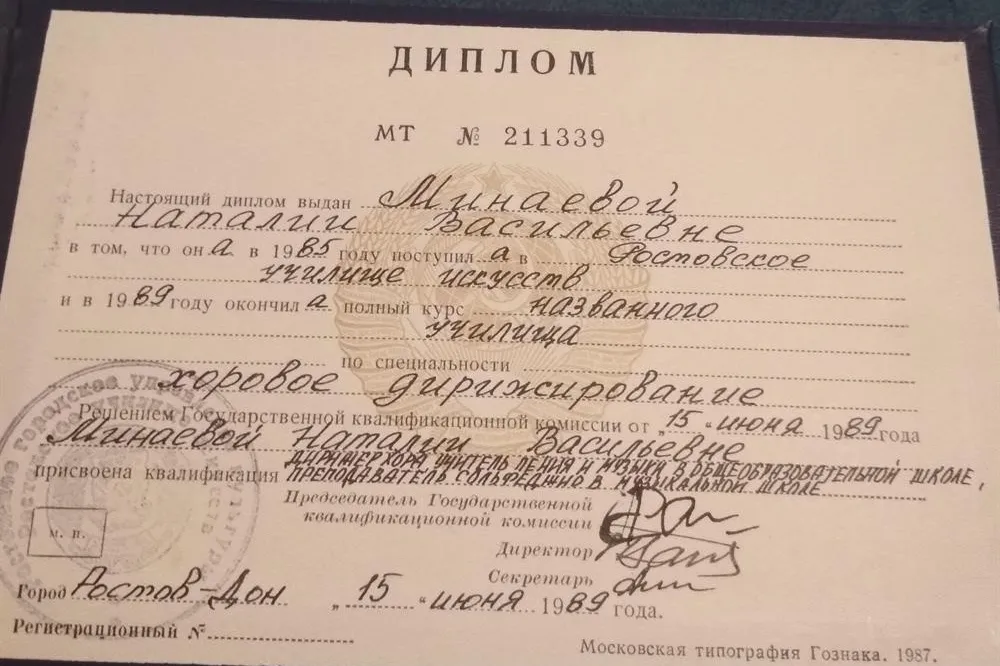 ДИПЛОМ
МТ № 211339
Настоящий диплом выдан Минаевой
Наталии Васильевне
в том, что она в 1985 году поступила в Ростовское
училище искусств
и в 1989 году окончила полный курс названного
училища
по специальности
хоровое дирижирование
Решением Государственной квалификационной комиссии от „15" июня 1989 года
Минаевой Наталии Васильевне
присвоена квалификация ДИРИЖЕР ХОРА, УЧИТЕЛЬ ПЕНИЯ И МУЗЫКИ В ОБЩЕОБРАЗОВАТЕЛЬНОЙ ШКОЛЕ,
ПРЕПОДАВАТЕЛЬ СОЛЬФЕДЖИО В МУЗЫКАЛЬНОЙ ШКОЛЕ
Председатель Государственной
квалификационной комиссии
Директор
Секретарь
м. п.
Город Ростов-Дон „15" июня 1989 года.
Регистрационный №
Московская типография Гознака. 1987.